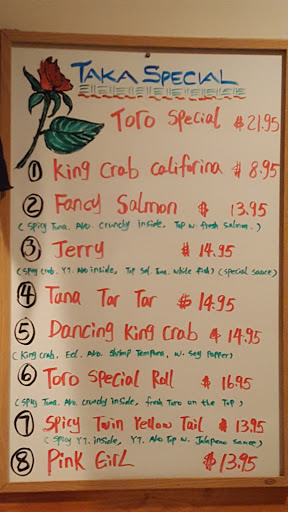 TAKA SPECIAL
Toro Special $21.95
1 King Crab califorina $8.95
2 Fancy Salmon $13.95
(Spicy Tuna. Avo. crunchy inside, Top w. fresh salmon.)
3 Jerry $14.95
(Spicy crab. Y.T. Avo inside, Top Sal. Tuna. white fish) (special sauce)
4 Tana Tar Tar $14.95
5 Dancing King Crab $14.95
(King crab, Eel. Avo. Shrimp Tempura, w. Soy papper)
6 Toro Special Roll $16.95
(Spicy Tuna. Avo. crunchy inside, fresh Toro on the Top)
7 Spicy Twin Yellow Tail $13.95
(Spicy Y.T. inside, Y.T. Avo Top w. Jalapeno sauce)
8 Pink Girl $13.95